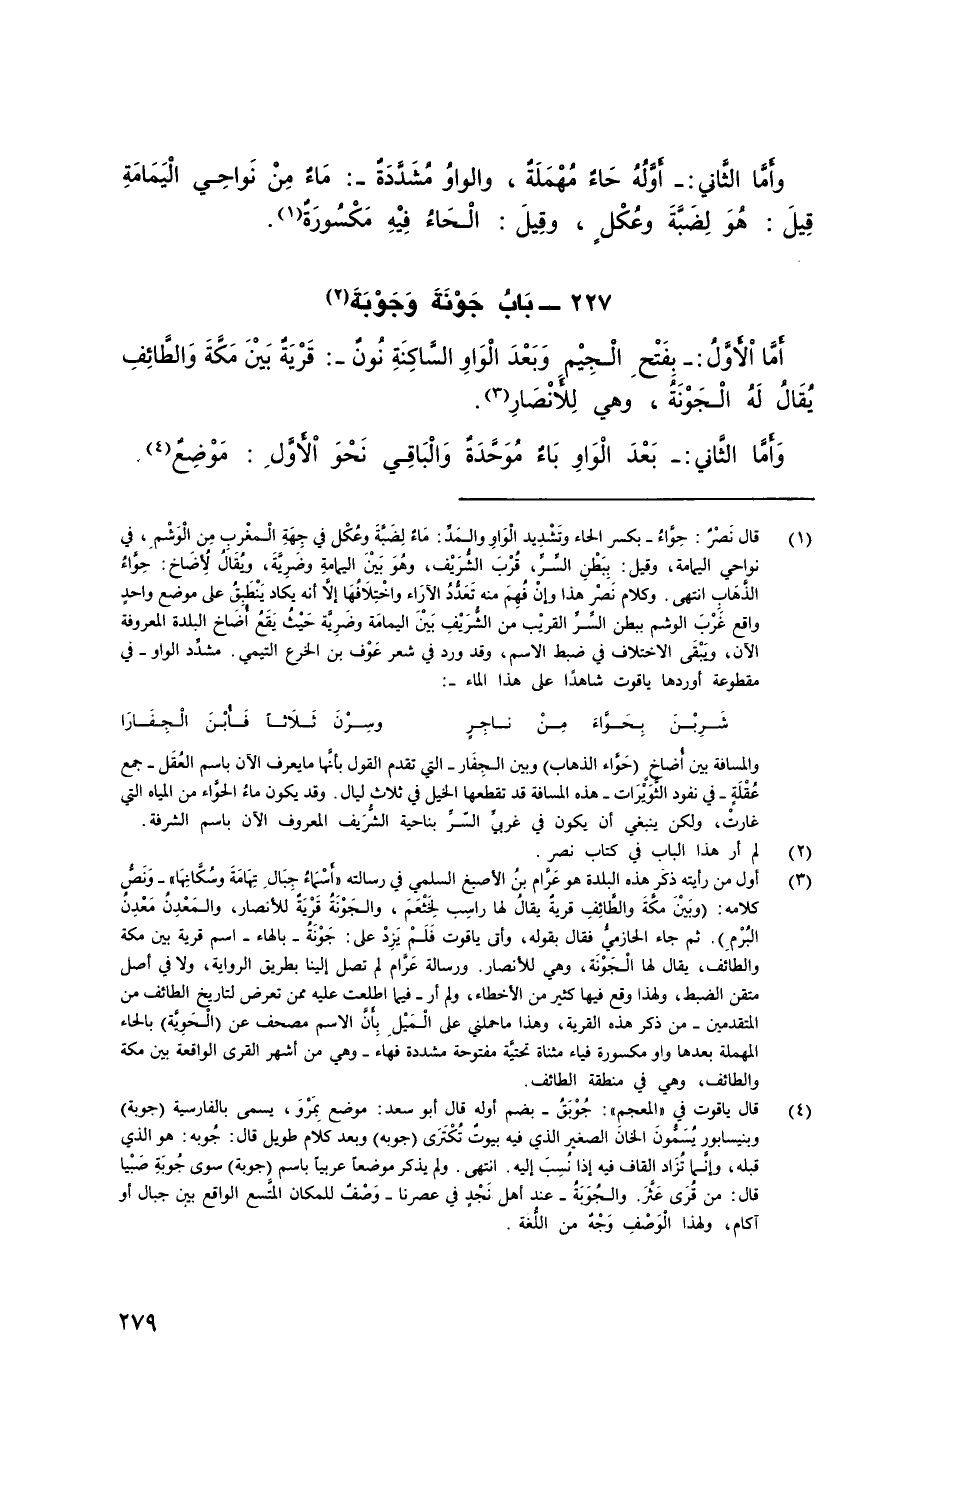 وأَمَّا الثَّاني:ـ أَوَّلُهُ حَاءٌ مُهْمَلَةٌ ، والواوُ مُشَدَّدَةٌ ـ: مَاءٌ مِنْ نَواحِي الْيَمَامَةِ
قِيلَ : هُوَ لِضَبَّةَ وعُكْلٍ ، وقِيلَ : الْحَاءُ فِيْهِ مَكْسُورَةٌ(١).
٢٢٧ ــ بَابُ جَوْنَةَ وَجَوْبَةَ(٢)
أَمَّا اْلأَوَّلُ:ـ بِفَتْحِ الْجِيْمِ وَبَعْدَ الْوَاوِ السَّاكِنَةِ نُونٌ ـ: قَرْيَةٌ بَيْنَ مَكَّةَ وَالطَّائِفِ
يُقَالُ لَهُ الْجَوْنَةُ ، وهي لِلأَنْصَارِ(٣).
وَأَمَّا الثَّاني:ـ بَعْدَ الْوَاوِ بَاءٌ مُوَحَّدَةٌ وَالْبَاقِي نَحْوَ اْلأَوَّلِ : مَوْضِعٌ(٤).
(١) قال نَصْرٌ : حِوَّاءُ ـ بكسر الحاء وتَشْدِيد الْوَاوِ والمَدِّ: مَاءٌ لِضَبَّةَ وعُكْل في جِهَةِ الْمغْرِبِ مِن الْوَشْمِ، في
نواحي اليمامة، وقيل: بِبَطْنِ السِّرِّ، قُرْبَ الشُّرَيْف، وهُوَ بَيْنَ اليمامةِ وضَرِيَّةَ، ويُقَالُ لِأُضَاخ: حِوَّاءُ
الذَّهَابِ انتهى. وكلام نَصْر هذا وإنْ فُهِمَ منه تَعَدُّدُ الآرَاء واخْتِلَافُهَا إلَّا أنه يكاد يَنْطَبِقُ على موضع واحدٍ
واقع غَرْبَ الوشم ببطن السِّرِّ القريْب من الشُّرَيْفِ بَيْنَ اليمامَة وضَرِيَّة حَيْثُ يَقَعُ أُضَاخ البلدة المعروفة
الآن، ويَبْقَى الاختلاف في ضبط الاسم، وقد ورد في شعر عَوْف بن الخرع التيمي. مشدَّد الواو ـ في
مقطوعة أوردها ياقوت شاهدًا على هذا الماء ـ:
شَرِبْنَ بِحَوَّاءَ مِنْ نَاجِرٍ وسِرْنَ ثَلَاثاً فَأُبْنَ الْجِفَارَا
والمسافة بين أُضاخٍ (حَوَّاء الذهاب) وبين الجِفَار ـ التي تقدم القول بأنَّها مايعرف الآن باسم العُقَل ـ جمع
عُقْلَةٍ ـ في نفود الثُّوَيْرَات ـ هذه المسافة قد تقطعها الخيل في ثلاث ليال. وقد يكون ماءُ الحوَّاء من المياه التي
غارتْ، ولكن ينبغي أن يكون في غربيِّ السِّرِّ بناحية الشُّرَيف المعروف الآن باسم الشرفة.
(٢) لم أر هذا الباب في كتاب نصر .
(٣) أول من رأيته ذكَر هذه البلدة هو عَرَّام بنُ الأصبغ السلمي في رسالته «أَسْمَاءُ جِبَالِ تِهَامَةَ وسُكَّانِهَا» ـ وَنَصُّ
كلامه: (وبَيْنَ مكَّةَ والطَّائِفِ قريةٌ يقالُ لها راسِب لِخَثْعَمَ ، والجَوْنَةُ قَرْيَةٌ للأنصار، والمَعْدِنُ مَعْدِنُ
البُرْمِ). ثم جاء الحازميُّ فقال بقوله، وأتى ياقوت فَلَمْ يَزِدْ على: جَوْنَةُ ـ بالهاء ـ اسم قرية بين مكة
والطائف، يقال لها الْجَوْنَة، وهي للأنصار. ورسالة عَرَّام لم تصل إلينا بطريق الرواية، ولا في أصل
متقن الضبط، ولهذا وقع فيها كثير من الأخطاء، ولم أر ـ فيما اطلعت عليه ممن تعرض لتاريخ الطائف من
المتقدمين ـ من ذكر هذه القرية، وهذا ماحملني على الْمَيْلِ بِأَنَّ الاسم مصحف عن (الْحَوِيَّة) بالحاء
المهملة بعدها واو مكسورة فياء مثناة تحتيَّة مفتوحة مشددة فهاء ـ وهي من أشهر القرى الواقعة بين مكة
والطائف، وهي في منطقة الطائف.
(٤) قال ياقوت في «المعجم»: جُوْبَقُ ـ بضم أوله قال أبو سعد: موضع بِمَرْوَ ، يسمى بالفارسية (جوبة)
وبنيسابور يُسَمُّونَ الخانَ الصغير الذي فيه بيوتٌ تُكْتَرَى (جوبه) وبعد كلام طويل قال: جُوبه: هو الذي
قبله، وإنَّما تُزَاد القاف فيه إذا نُسِبَ إليه. انتهى. ولم يذكر موضعاً عربياً باسم (جوبة) سوى جُوبَةِ صَبْيا
قال: من قُرَى عَثَّرَ. والجُوَبَةُ ـ عند أهل نَجْدٍ في عصرنا ـ وَصْفٌ للمكان المتَّسع الواقع بين جبال أو
آكام، ولهذا الْوَصْفِ وَجْهٌ من اللُّغة .
٢٧٩